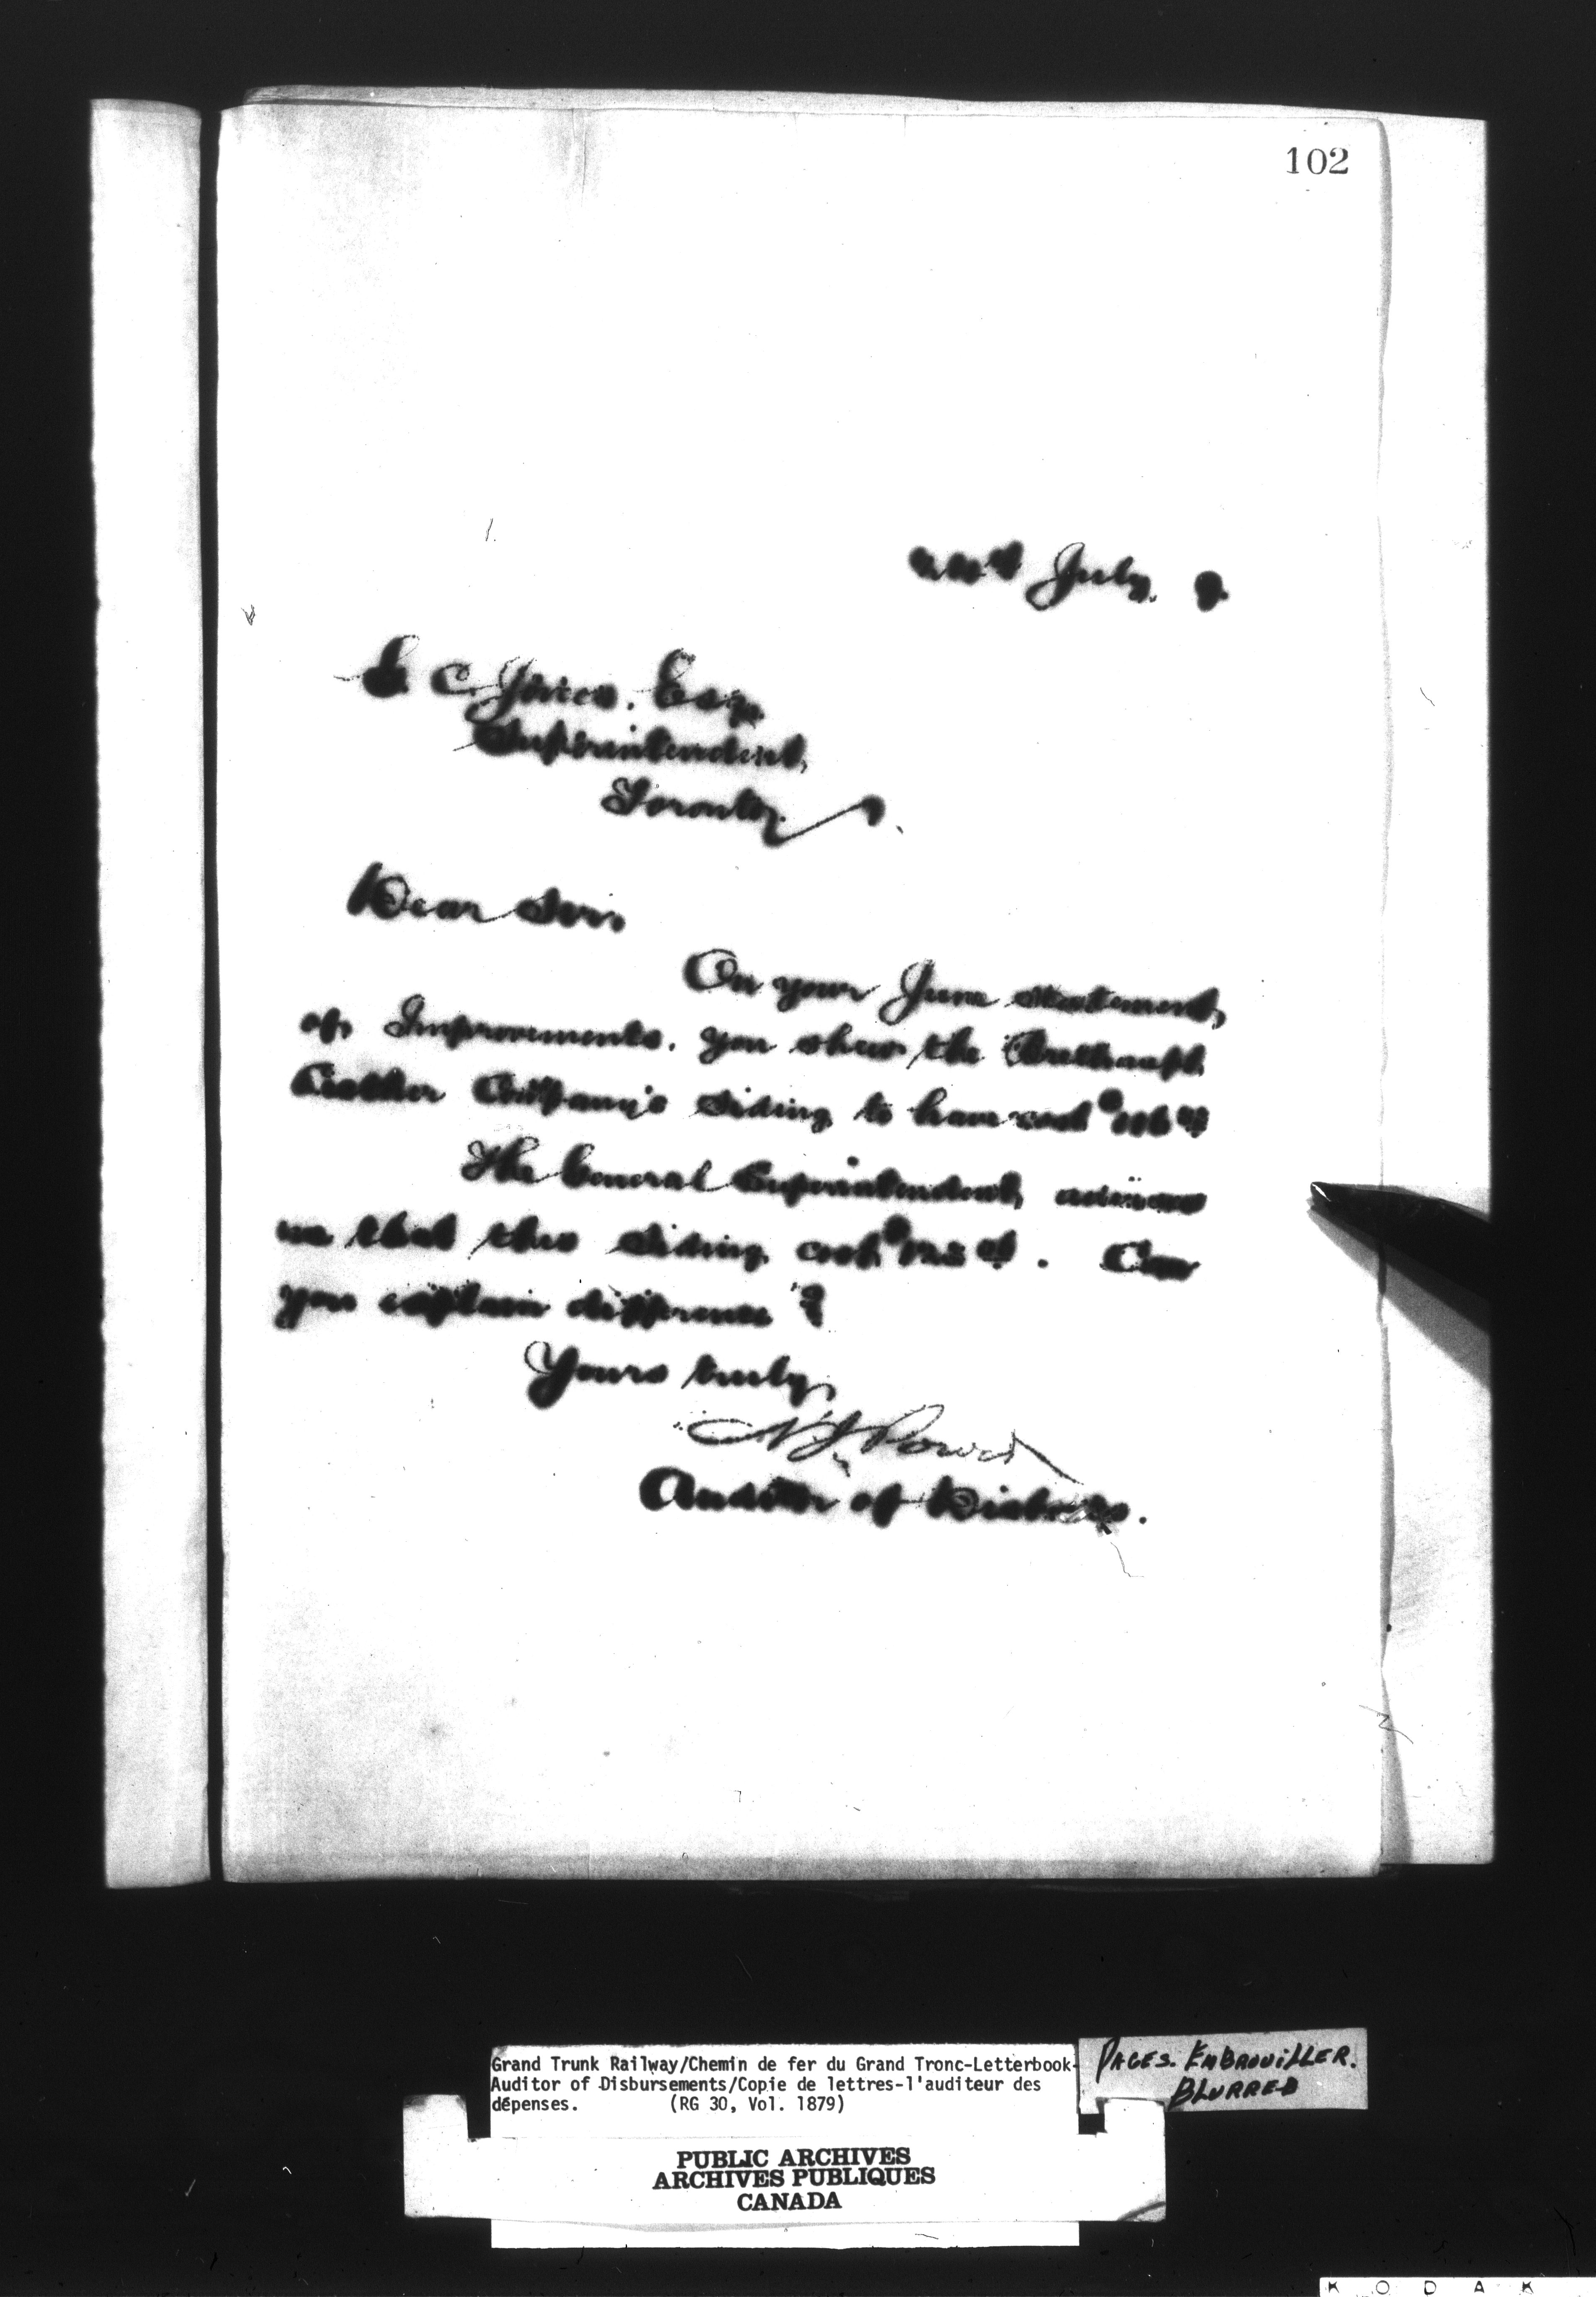 102
July
C. Jones. Esq
Superintendent,
Toronto.
Dear Sir,
On your June statement,
of Improvements. you show the Breithaupt
Leather Company's Siding to have cost
The General Superintendent, advises
me that this Siding cost $ . Can
you explain difference ?
Yours truly,
Auditor of Disbmts.
Grand Trunk Railway/Chemin de fer du Grand Tronc-Letterbook-
Auditor of Disbursements/Copie de lettres-l'auditeur des
dépenses. (RG 30, Vol. 1879)
PAGES. EMBROUILLER.
BLURRED
PUBLIC ARCHIVES
ARCHIVES PUBLIQUES
CANADA
K O D A K